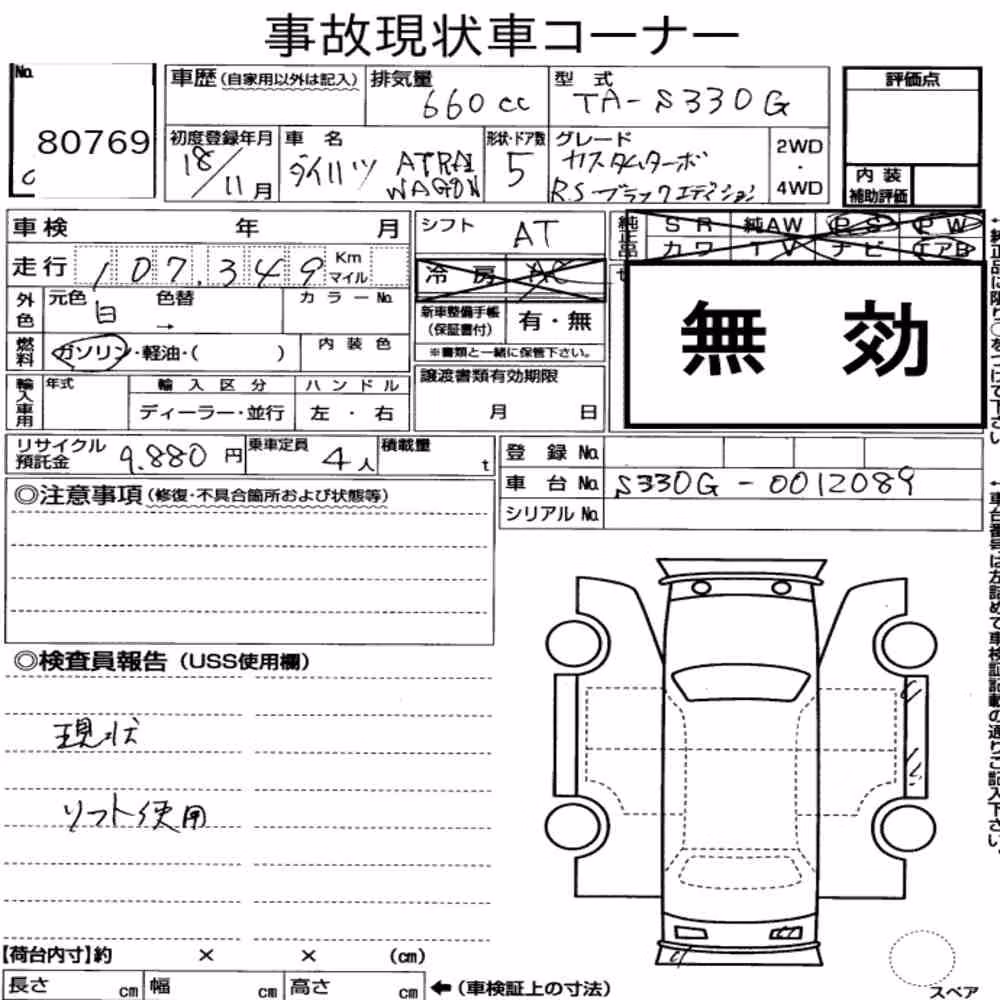 事故現状車コーナー
No. 80769
車歴(自家用以外は記入) 排気量 660cc 型式 TA-S330G
初度登録年月 18/11月 車名 ダイハツ ATRAI WAGON 形状・ドア数 5 グレード カスタムターボ RSブラックエディション 2WD・4WD
評価点
内装補助評価
車検 年 月
走行 107,349 Km マイル
外色 元色 白 色替 → カラーNo.
燃料 ガソリン・軽油・( ) 内装色
輸入車用 年式 輸入区分 ディーラー・並行 ハンドル 左・右
シフト AT
冷房 AC
新車整備手帳(保証書付) 有・無
※書類と一緒に保管下さい。
譲渡書類有効期限
月 日
純正品 SR 純AW PS PW
カワ TV ナビ エアB
無効
←純正品に限り○をつけて下さい
リサイクル預託金 9.880円 乗車定員 4人 積載量 t
登録No.
車台No. S330G-0012089
シリアルNo.
←車台番号は左詰めで車検証記載の通りご記入下さい。
◎注意事項(修復・不具合箇所および状態等)
◎検査員報告(USS使用欄)
現状
リフト使用
【荷台内寸】約 × × (cm)
長さ cm 幅 cm 高さ cm ←(車検証上の寸法)
スペア